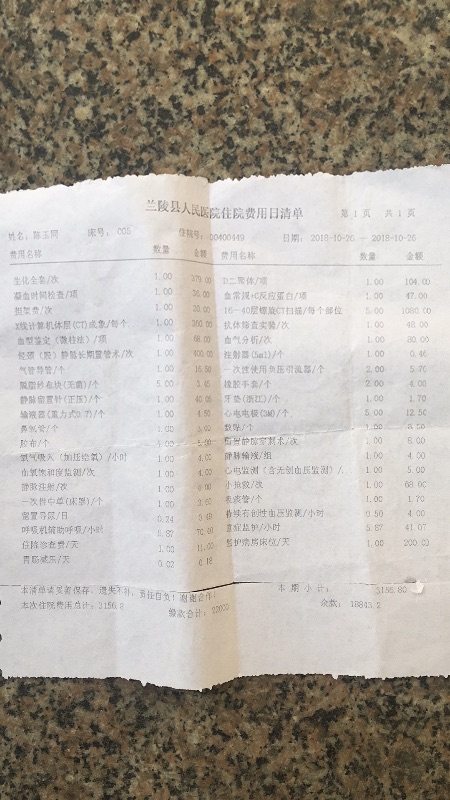 兰陵县人民医院住院费用日清单 第 1 页 共 1 页
姓名: 陈玉同 床号: 005 住院号: 00400449 日期: 2018-10-26 — 2018-10-26
费用名称 数量 金额 费用名称 数量 金额
生化全套/次 1.00 379.00 D二聚体/项 1.00 104.00
凝血时间检查/项 1.00 血常规+C反应蛋白/项 1.00 47.00
担架费/次 1.00 20.00 16-40层螺旋CT扫描/每个部位 5.00 1080.00
X线计算机体层(CT)成象/每个 1.00 抗体筛查实验/次 1.00 48.00
血型鉴定(微柱法)/项 1.00 血气分析/次 1.00 80.00
颈颈(股)静脉长期置管术/次 1.00 400.00 注射器(5ml)/个 1.00 0.46
气管导管/个 1.00 一次性使用负压引流器/个 2.00 5.70
脱脂纱布块(无菌)/个 5.00 3.45 橡胶手套/个 2.00 4.00
静脉留置针(正压)/个 1.00 40.00 牙垫(浙江)/个 1.00 1.70
输液器(重力式0.7)/个 1.00 心电电极(3M)/个 5.00 12.50
鼻氧管/个 1.00 1.00
胶布/个 5.00 术/次 1.00
氧气吸入(加压给氧)/小时 1.00 4.00 静脉输液/组 1.00 4.00
血氧饱和度监测/次 1.00 4.00 心电监测(含无创血压监测)/ 1.00 5.00
静脉注射/次 1.00 小抢救/次 1.00 68.00
一次性中单(床罩)/个 1.00 1.00 1.70
留置导尿/日 0.24 持续有创性血压监测/小时 0.50 4.00
呼吸机辅助呼吸/小时 5.87 重症监护/小时 5.87 41.07
住院诊查费/天 1.00 11.00 监护病房床位/天 1.00 200.00
胃肠减压/天 0.02 0.18
本清单请妥善保存, 遗失不补, 责任自负! 谢谢合作。 本 期 小 计: 3156.80
本次住院费用总计: 3156.8 缴款合计: 22000 余款: 18843.2